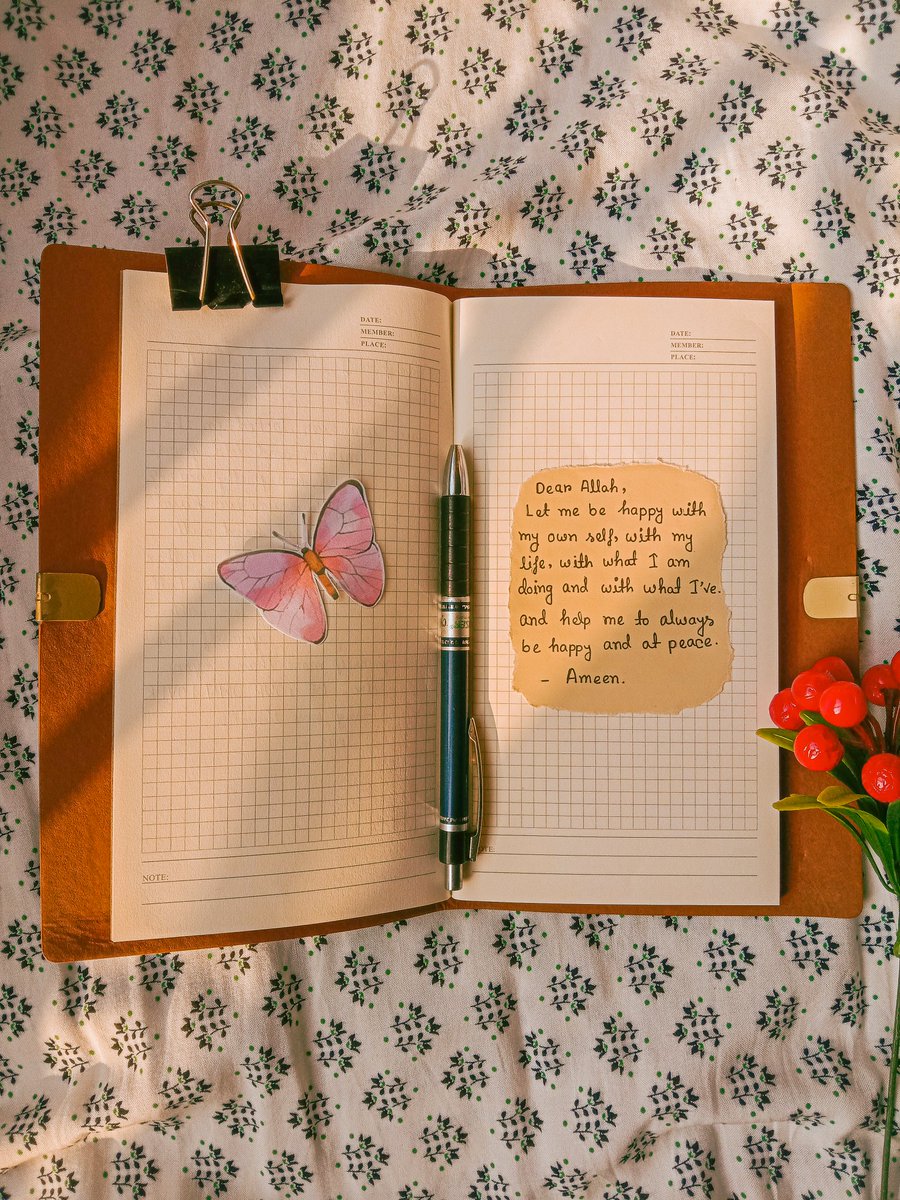 DATE:
MEMBER:
PLACE:
NOTE:
DATE:
MEMBER:
PLACE:
Dear Allah,
Let me be happy with
my own self, with my
life, with what I am
doing and with what I've.
and help me to always
be happy and at peace.
- Ameen.